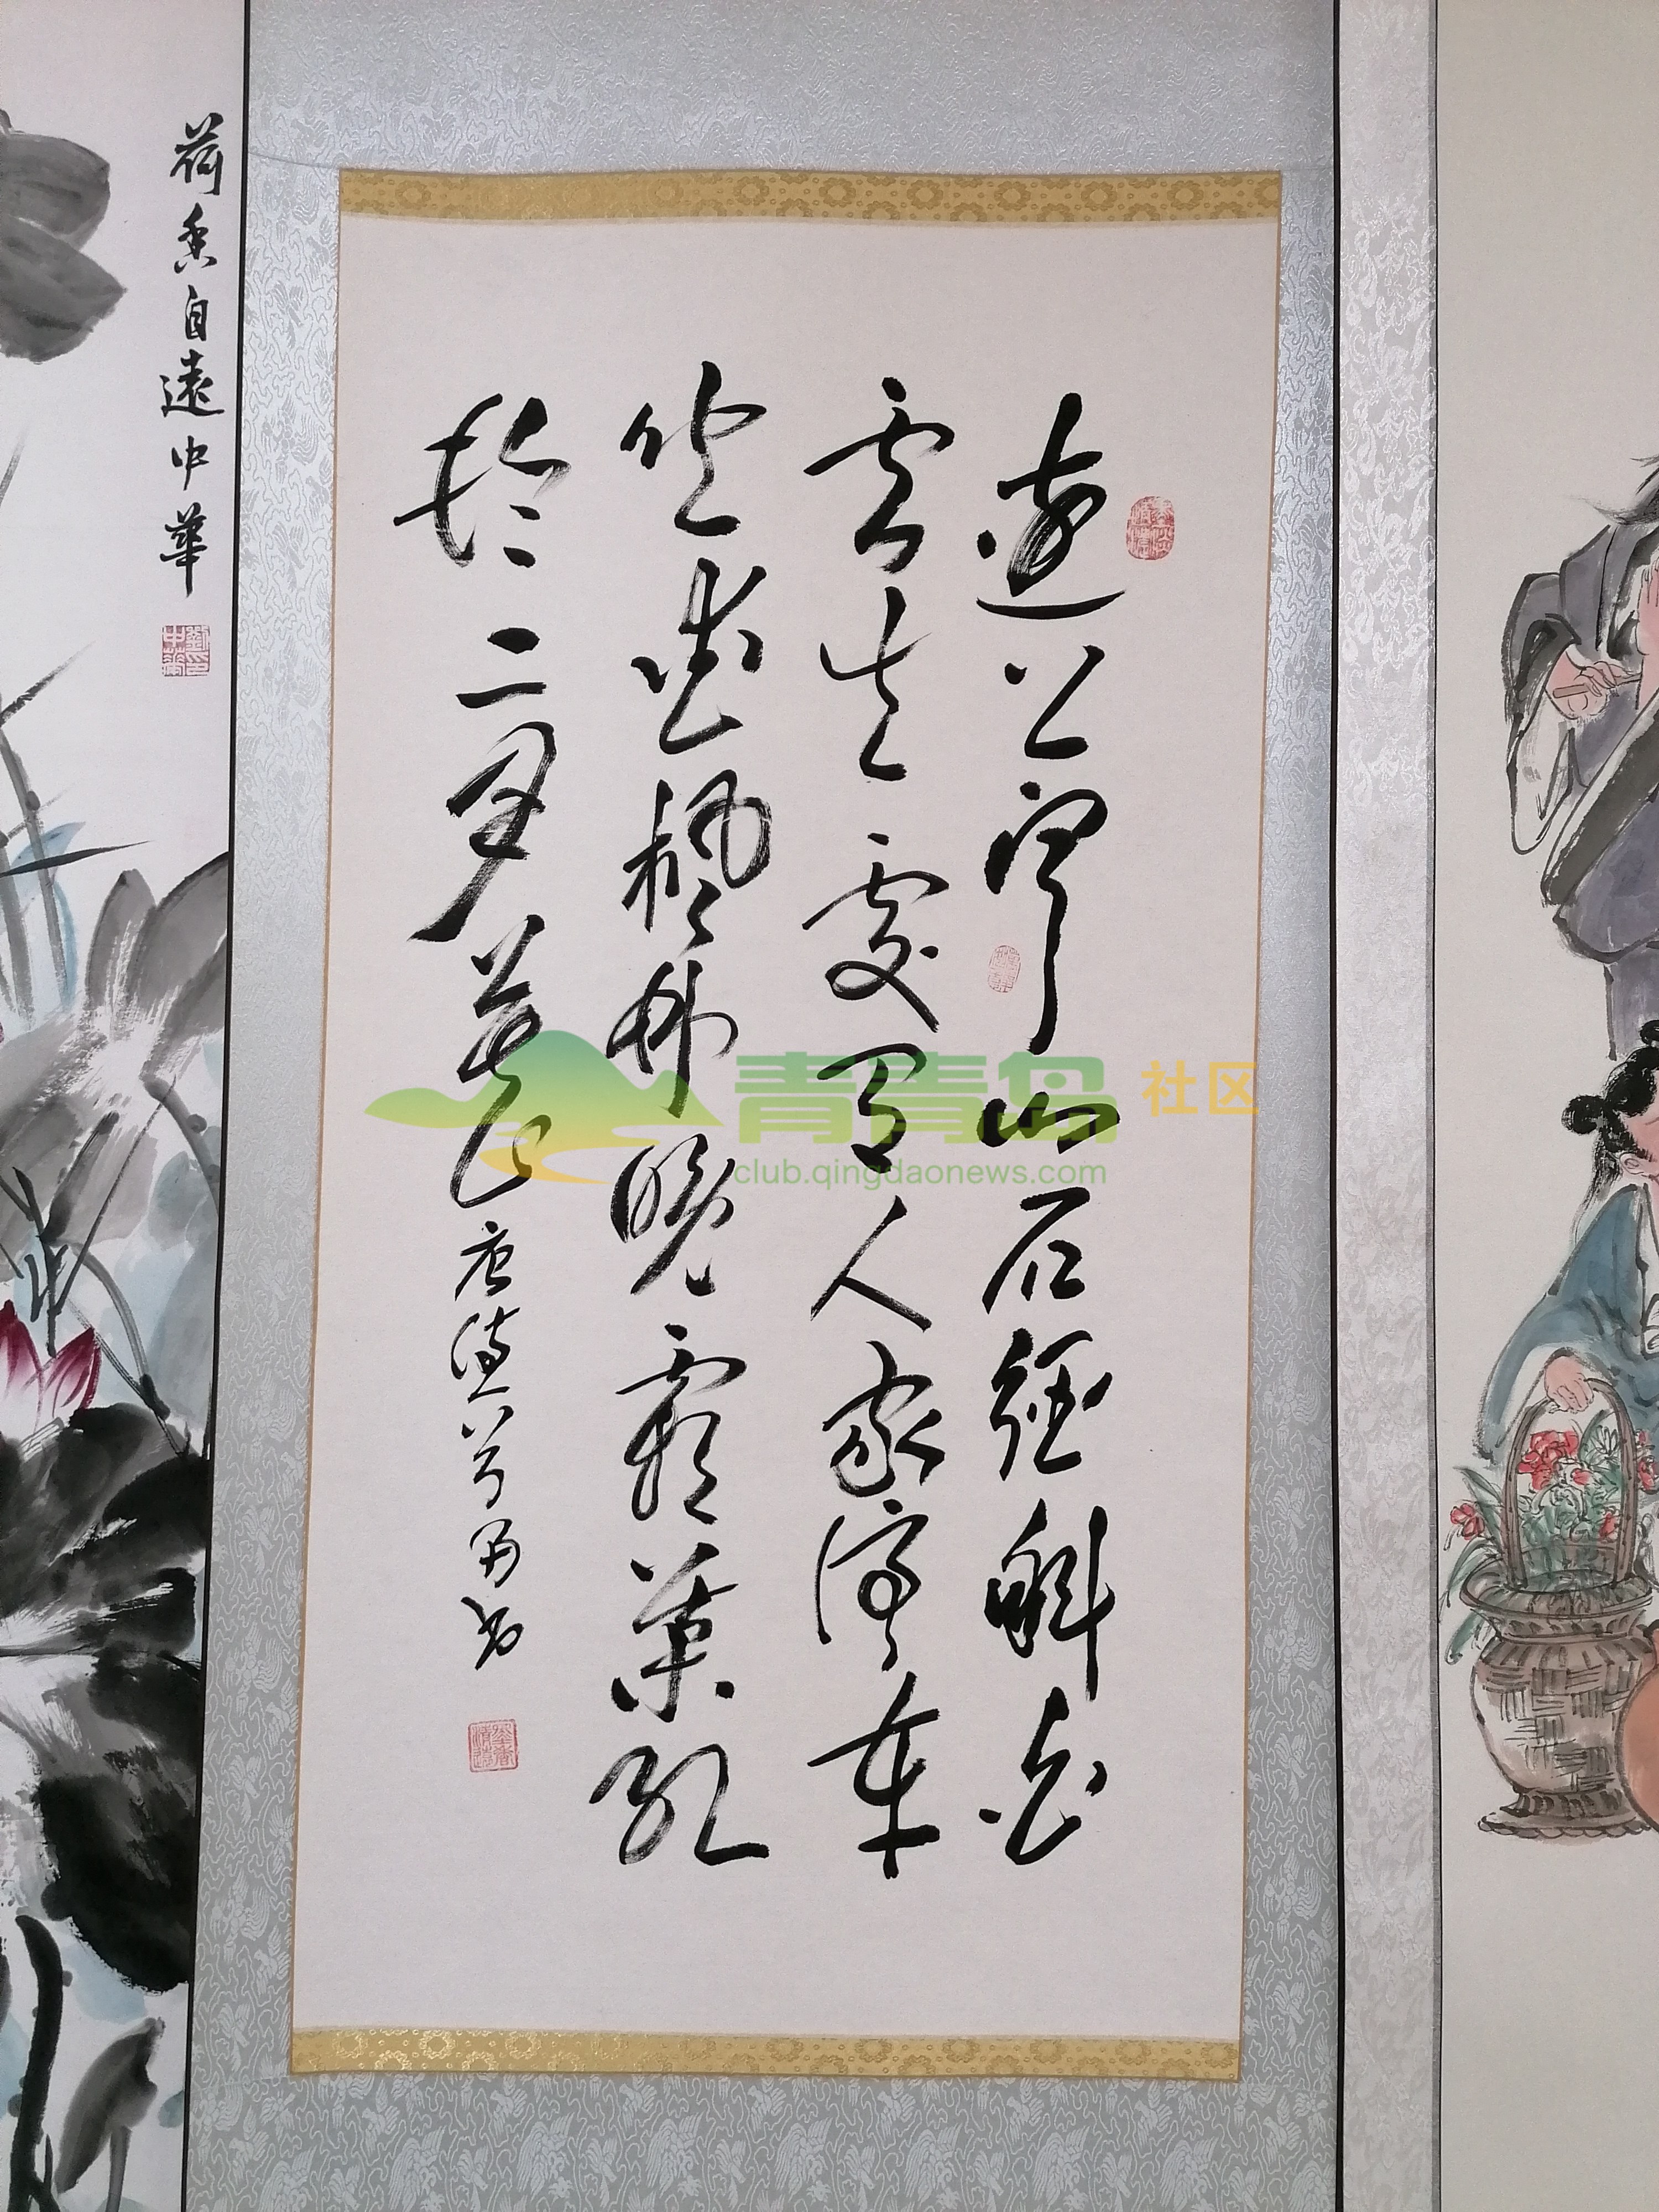 遠上寒山石徑斜白
雲生處有人家停車
坐愛楓林晚霜葉紅
於二月花
唐詩一首 書
荷香自遠中華
劉印中華
青青岛 社区
club.qingdaonews.com